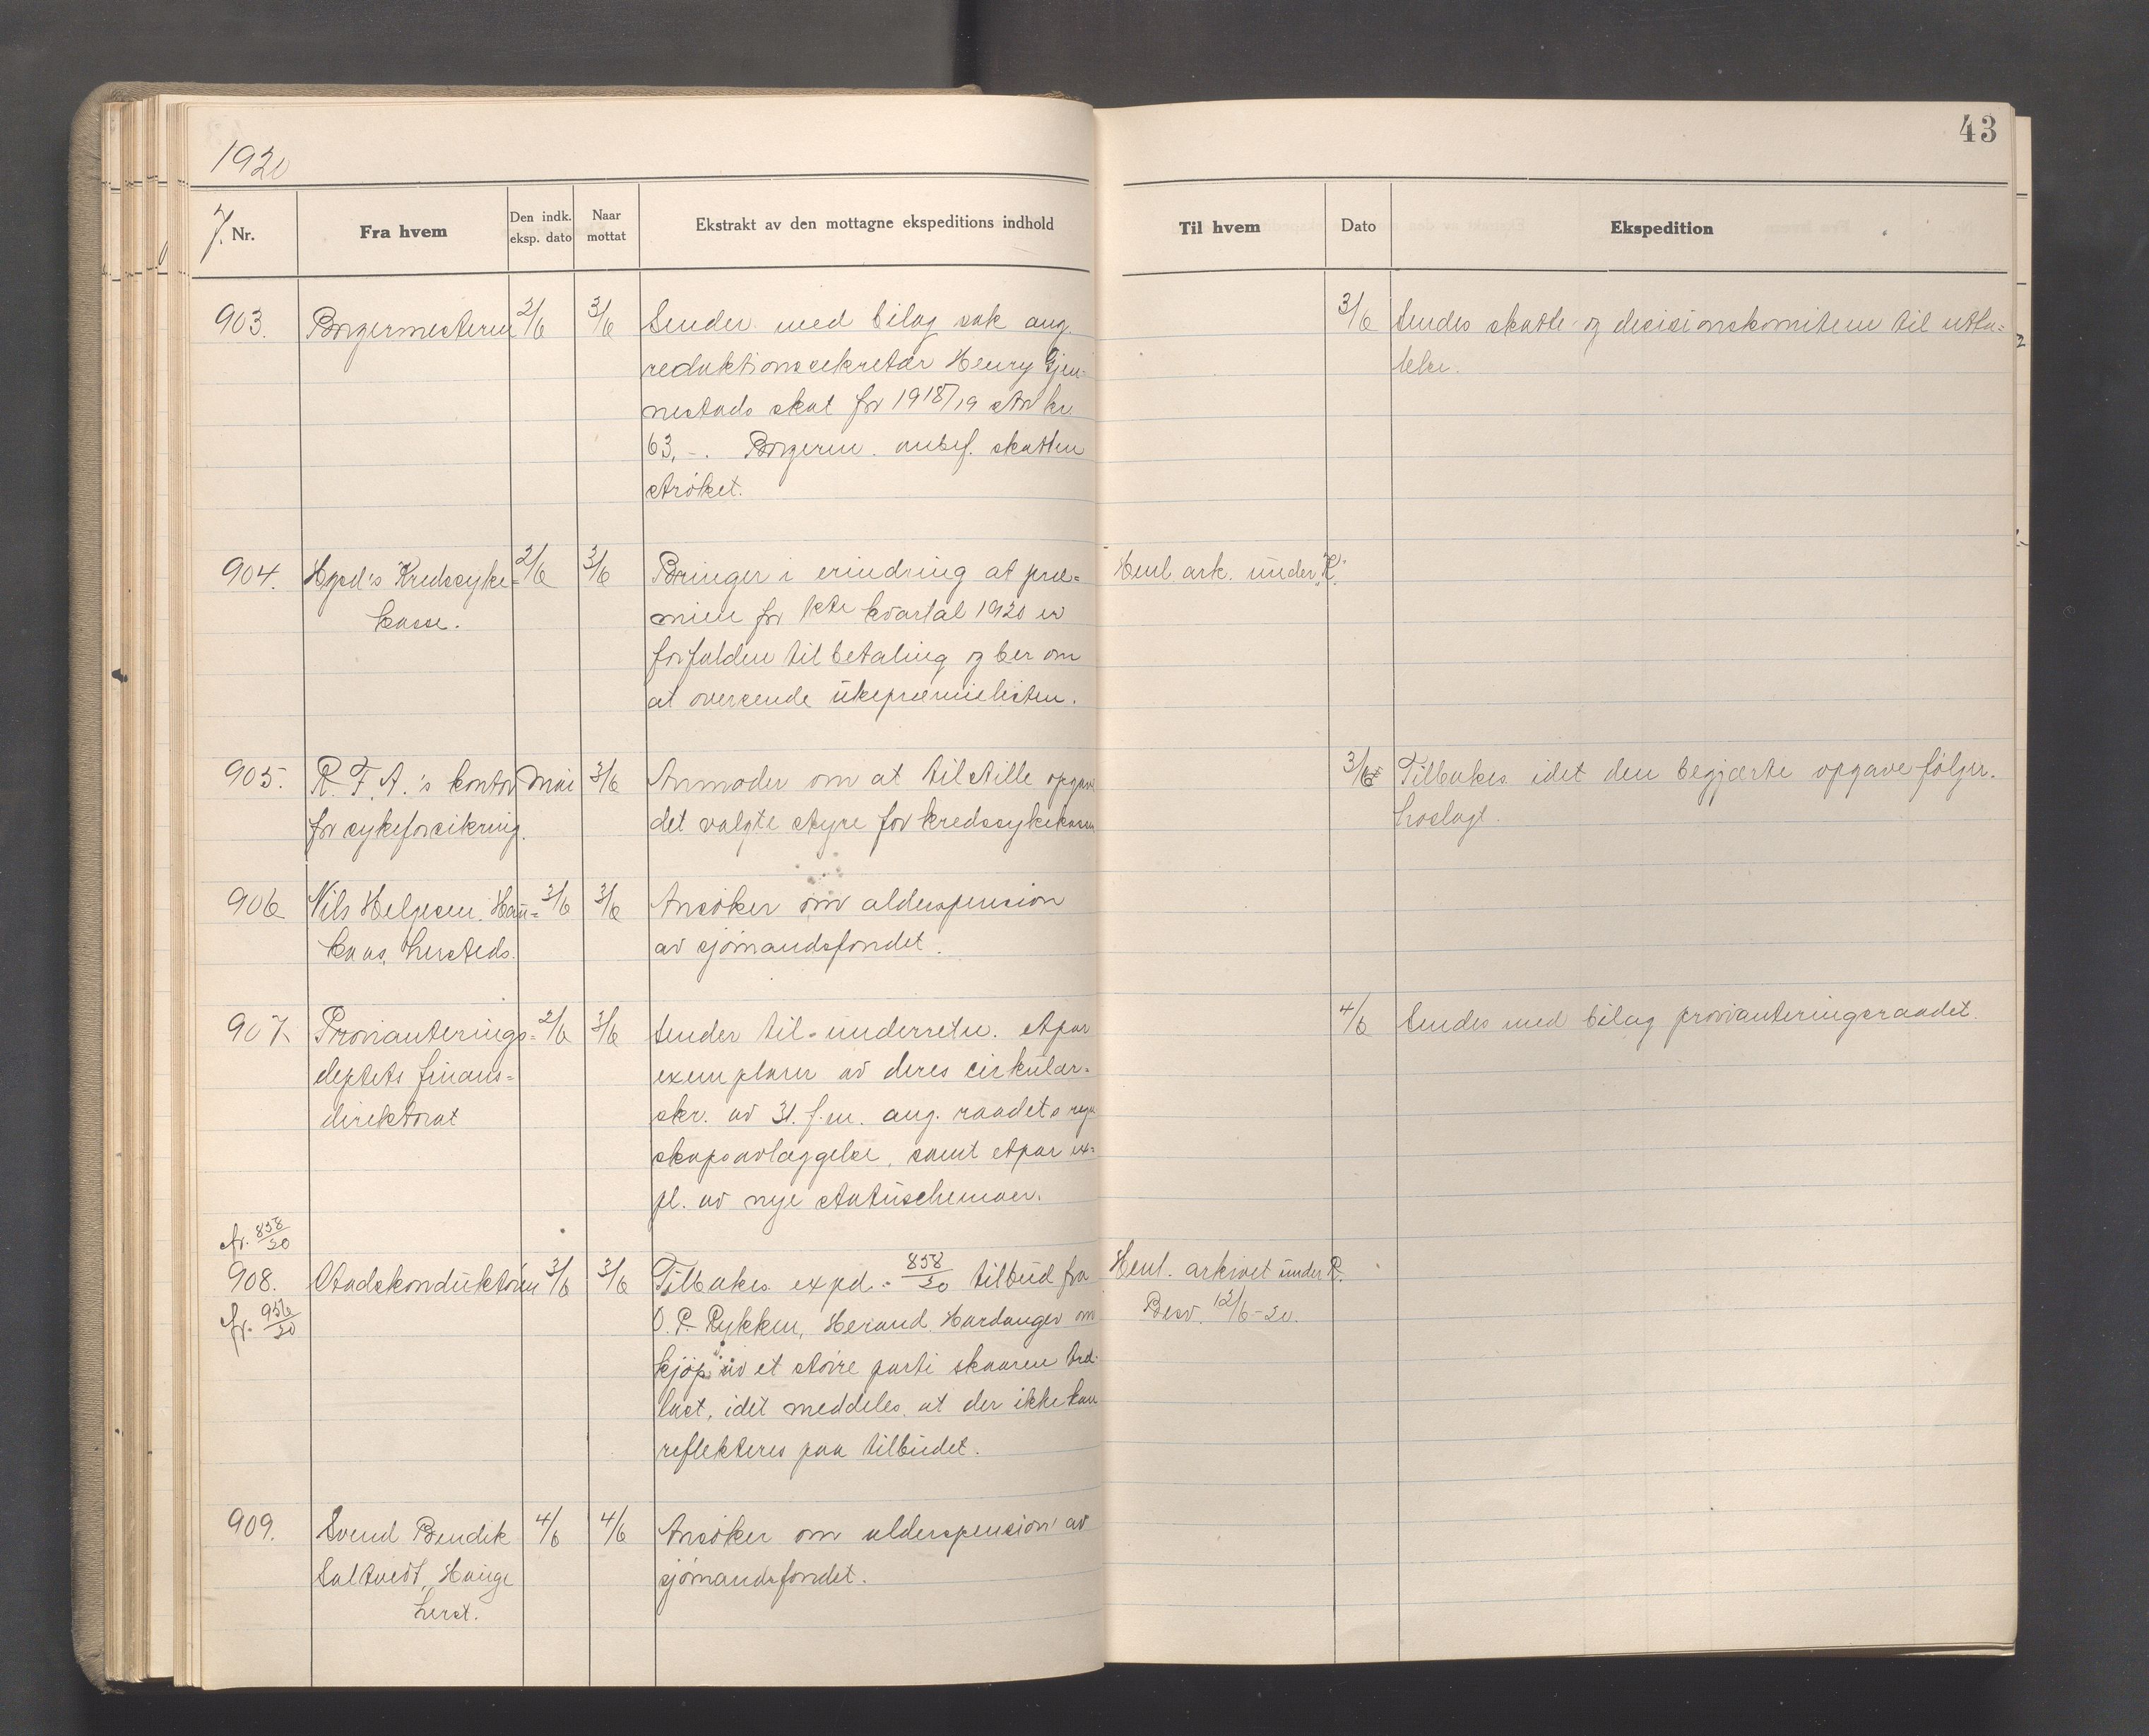 1920
43
J. Nr.
Fra hvem
Den indk. eksp. dato
Naar mottat
Ekstrakt av den mottagne ekspeditions indhold
Til hvem
Dato
Ekspedition
903. Borgermesteren 2/6 3/6 Sender med bilag sak ang.
redaktionssekretær Henry Gjen-
nestads skat for 1918/19 stor kr.
63,-. Borgerm. anbef. skatten
strøket.
3/6 Sendes skatte- og decisionskomiteen til utta-
lelse.
904. Hgsd's Kredssyke- 2/6 3/6 Bringer i erindring at præ-
kasse. mien for 1ste kvartal 1920 er
forfalden til betaling og ber om
at oversende ukepræmielisten.
Henl ark. under "K."
905. R. F. A.'s kontor Mai 3/6 Anmoder om at tilstille opgave
for sykeforsikring. det valgte styre for kredssykekassen
3/6 Tilbakes idet den begjærte opgave følger
hoslagt.
906 Nils Helgesen, Hau- 3/6 3/6 Ansøker om alderspension
kaas, hersteds. av sjømandsfondet.
907. Provianterings- 2/6 3/6 Sender til underretn. etpar
deptets finans- exemplarer av deres cirkulær-
direktorat skr. av 31. f.m. ang. raadets regn
skapsavlæggelse, samt etpar ex-
pl. av nye statusschemaer.
4/6 Sendes med bilag provianteringsraadet.
cfr. 858/20
908. Stadskonduktøren 3/6 3/6 Tilbakes. expd. 858/20 tilbud fra
cfr. 956/20 O. P. Rykken, Herand Hardanger om
kjøp av et større parti skaaren træ-
last, idet meddeles at der ikke kan
reflekteres paa tilbudet.
Henl. arkivet under R.
Besv. 12/6-20.
909. Svend Bendik 4/6 4/6 Ansøker om alderspension av
Saltvedt, Hauge sjømandsfondet.
herst.